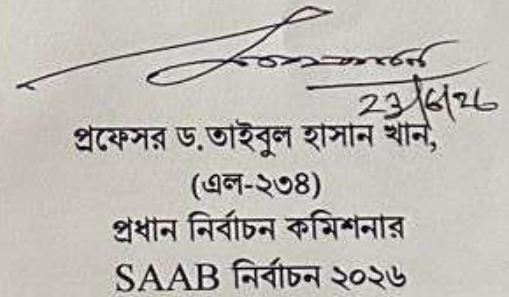 23/6/26
প্রফেসর ড.তাইবুল হাসান খান,
(এল-২৩৪)
প্রধান নির্বাচন কমিশনার
SAAB নির্বাচন ২০২৬